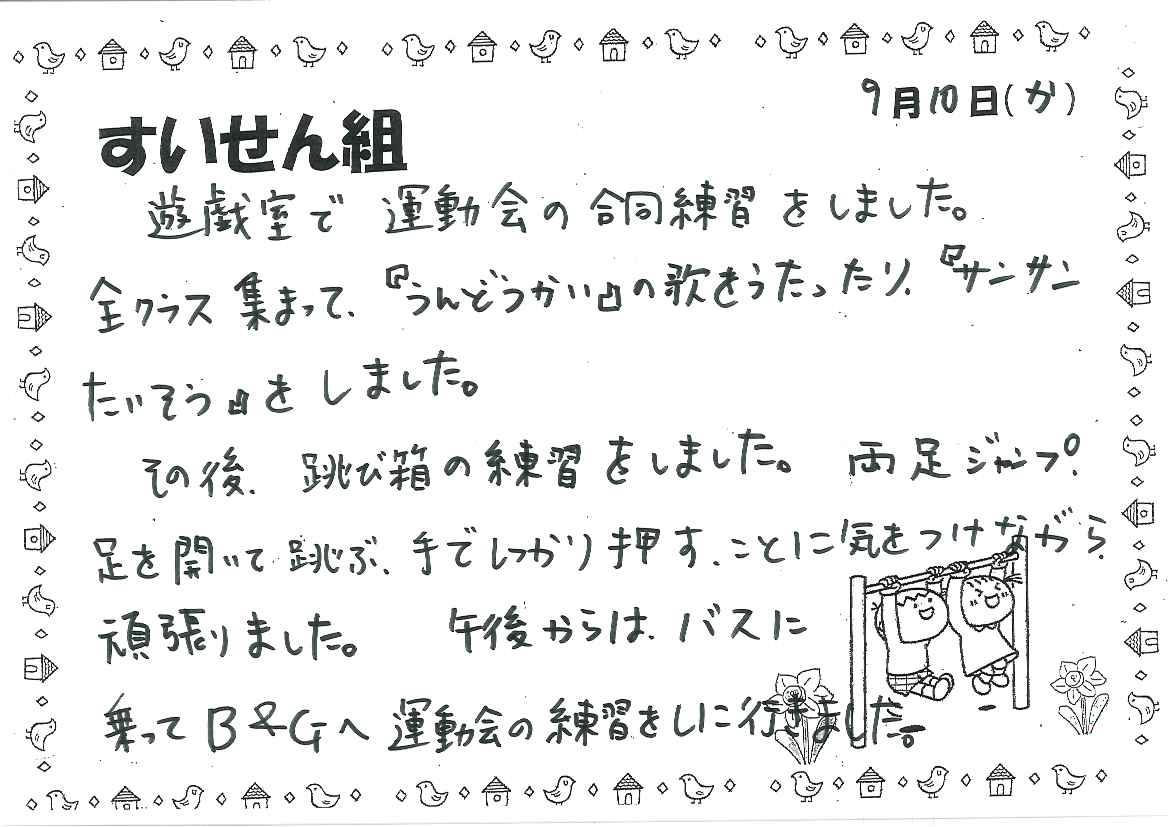 9月10日(か)
すいせん組
遊戯室で 運動会の合同練習をしました。
全クラス集まって、『うんどうかい』の歌をうたったり、『サンサン
たいそう』をしました。
その後、跳び箱の練習をしました。 両足ジャンプ!
足を開いて跳ぶ、手でしっかり押す、ことに気をつけながら
頑張りました。 午後からは、バスに
乗ってB&Gへ運動会の練習をしに行きました。